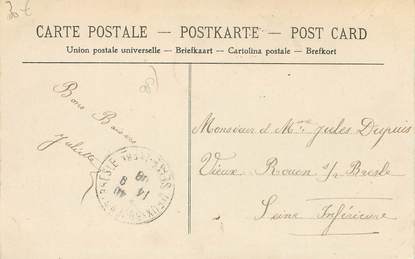 30 €
CARTE POSTALE — POSTKARTE — POST CARD
Union postale universelle — Briefkaart — Cartolina postale — Brefkort
Bons Baisers
Juliette
Monsieur et Mme Jules Dupuis
Vieux Rouen s/ Bresle
Seine Inférieure
14 8